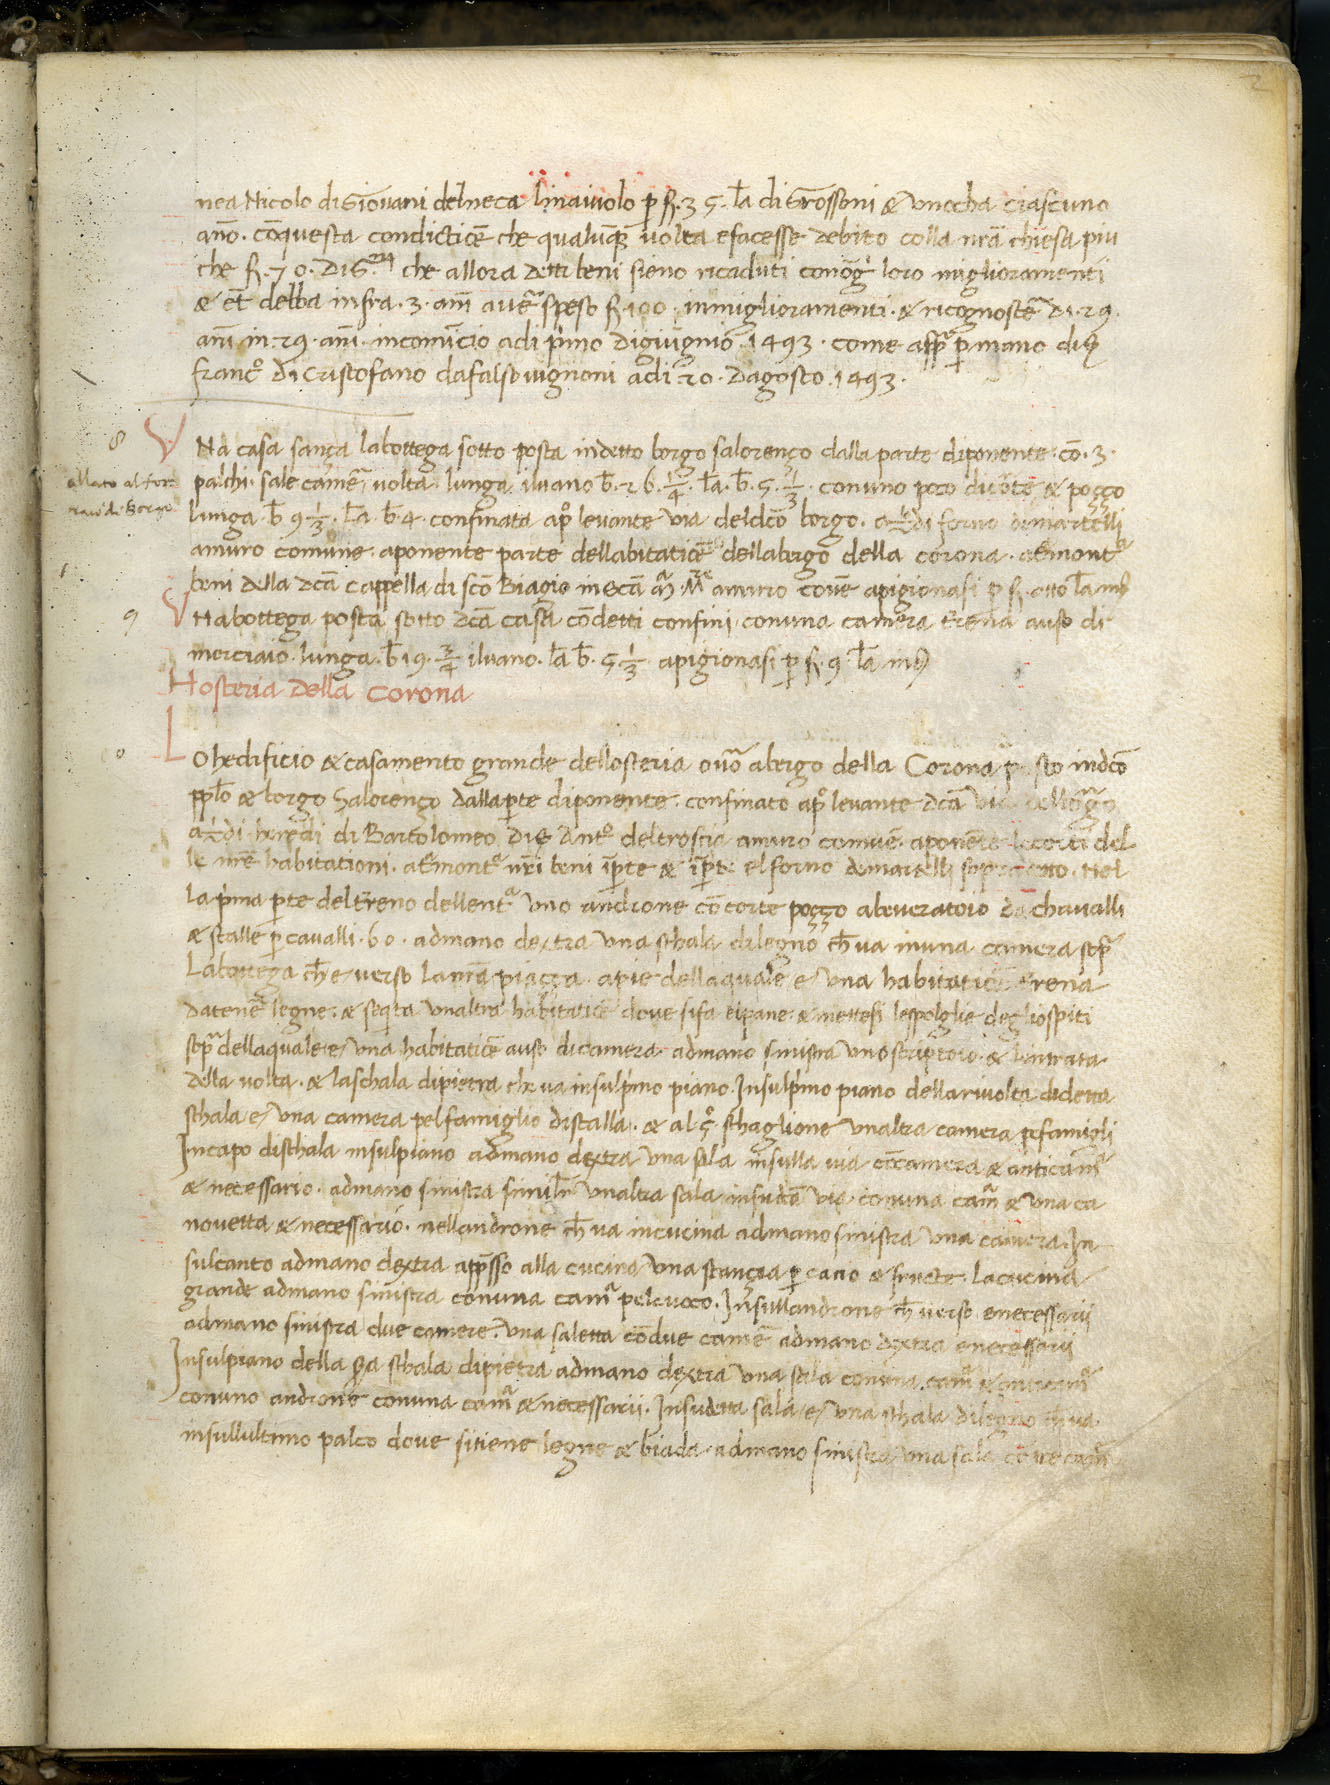 2
nea Nicolo di Giovani del neca linaiuolo p̄ f. 35. lā di Grossoni & unocha ciascuno
año. cō questa condictiōe che qualūq volta efacesse debito colla nrā chiesa piu
che f. 70. DiG. che allora detti beni sieno ricaduti con ogī loro miglioramenti
& et debba infra .3. anī avēr speso f. 100 . inmiglioramenti . & ricognoscē di . 29.
anī in . 29. anī . incomīcio adi pīno digiugnio . 1493 . come app̄ p̄ mano di S
franc° di Cristofano dafalsovignoni adi 20. Dagosto . 1493 .
8
V Na casa sança labottega sotto posta indetto borgo salorenço dalla parte diponente . cō . 3 .
allato al for
palchi . sale camēr volta . lunga iluano b̄ . 26. 1/4 . lā . b̄ . 5 . 1/3 . conuno poco di & poçço
no di borgo
lunga . b̄ 9 1/3 . lā . b̄ 4 . confinata ap° levante via deldcō borgo . di forno demartelli
amuro comune . aponente parte dellabitatiōe dellabergo della corona . amont°
beni della dcā cappella di scō Biagio in scā amuro coūe apigionasi p̄ f. otto lā
9
V Na bottega posta sotto dcā casa cōdetti confini . conuna camera terena auso di
merciaio . lunga . b̄ 19. 3/4 iluano . lā b̄ . 5 1/3 apigionasi p̄ f. 9 . lā
Hosteria della Corona
L
0
O hedificio & casamento grande dellosteria ovō abergo della Corona posto indcō
pplo & borgo Salorenço dallapte diponente . confinato ap° levante dcā via
heredi di Bartolomeo di S Ant° deltroscia amuro comūe . aponēte le corti del
le nrē habitationi . amont° nrī beni īpte & īpte el forno demartelli sopradetto . Nel
la pīma pte deltēreno dellentā uno androne cō corte poçço abeveratoio da chavalli
& stalle p̄ cavalli . 60 . admano dextra una schala dilegno ch̄ va inuna camera sopr̄
Labottega ch̄ e verso lanrā piaçça . apie dellaquale e una habitatiōe terena
datenē legne . & seqta unaltra habitatiōe dove sifa elpane . & mettesi lespolglie degliospiti
sopr̄ dellaquale e una habitatiōe auso dicamera . admano sinistra uno scriptoio . & lintrata
della volta . & laschala dipietra che va insulpīmo piano . Insulpīmo piano dellarivolta didetta
schala e una camera pelfamiglio distalla . & al 5° schaglione unaltra camera pefamigli
Incapo dischala insulpiano admano dextra una sala insulla via cō camera & anticamr̄
& necessario . admano sinistra similr̄ unaltra sala insudcā via . conuna camr̄ & una ca
novetta & necessario . nellandrone ch̄ va incucina admano sinistra una camera . In
sulcanto admano dextra appsso alla cucina una stançia p̄ cacio & fructe . Lacucina
grande admano sinistra conuna camr̄ pelcuoco . Insullandrone ch̄ verso enecessarii
admano sinistra due camere . una saletta cōdue camē admano dextra enecessarii
Insulpiano della schala dipietra admano dextra una sala conuna camr̄ & anticamr̄
conuno androne conuna camr̄ & necessarii . Insudetta sala e una schala dilegno ch̄ va
insullultimo palco dove sitiene legne & biada . admano sinistra una sala cō tre camr̄